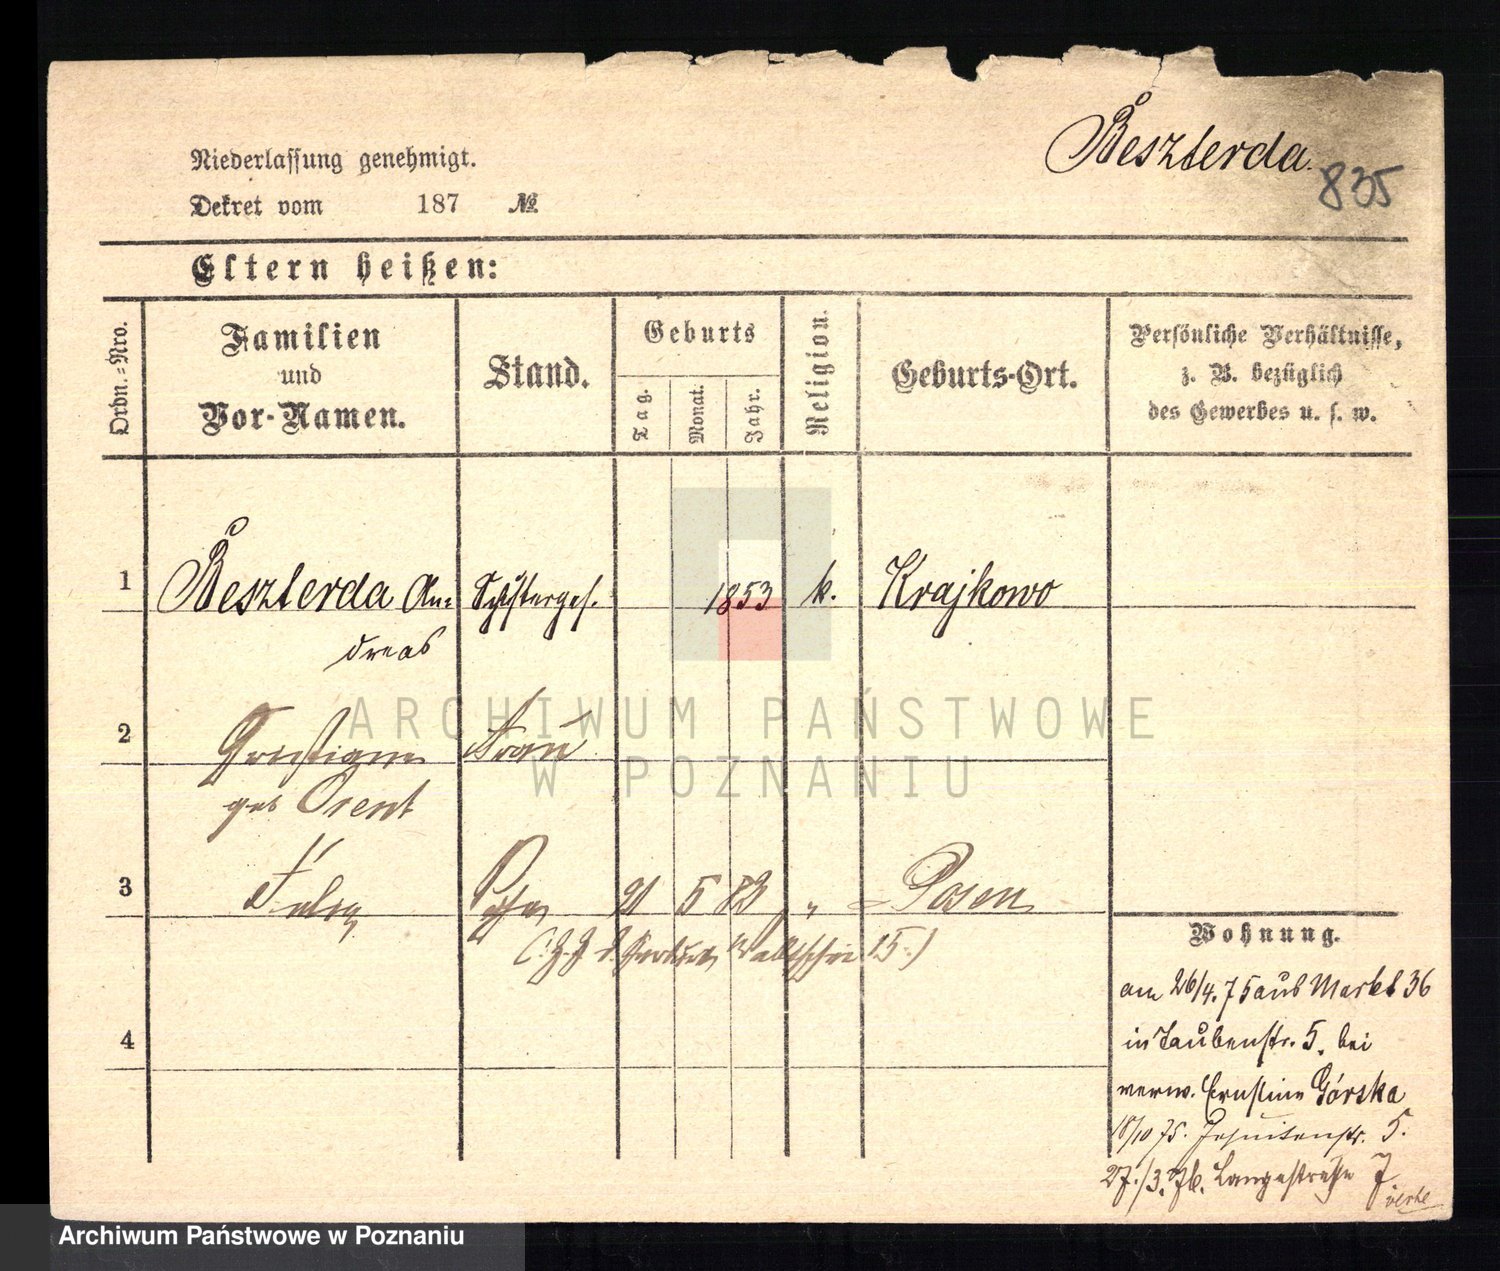 Beszterda.
835
Niederlassung genehmigt.
Dekret vom 187 №
Eltern heißen:
Ordn.-Nro.
Familien und Vor-Namen.
Stand.
Geburts
Tag.
Monat.
Jahr.
Religion.
Geburts-Ort.
Persönliche Verhältnisse,
z. B. bezüglich
des Gewerbes u. s. w.
1 Beszterda An= Schusterges. 1853 k. Krajkowo
dreas
2 Frau
geb
3 21 5 83 " Posen
15.)
4
Wohnung.
am 26/4. 75 aus Markt 36
in Taubenstr. 5. bei
verw. Ernstine Górska
18/10 75. Jesuitenstr. 5.
27./3. 76. Langestraße 7
verte
ARCHIWUM PAŃSTWOWE
W POZNANIU
Archiwum Państwowe w Poznaniu